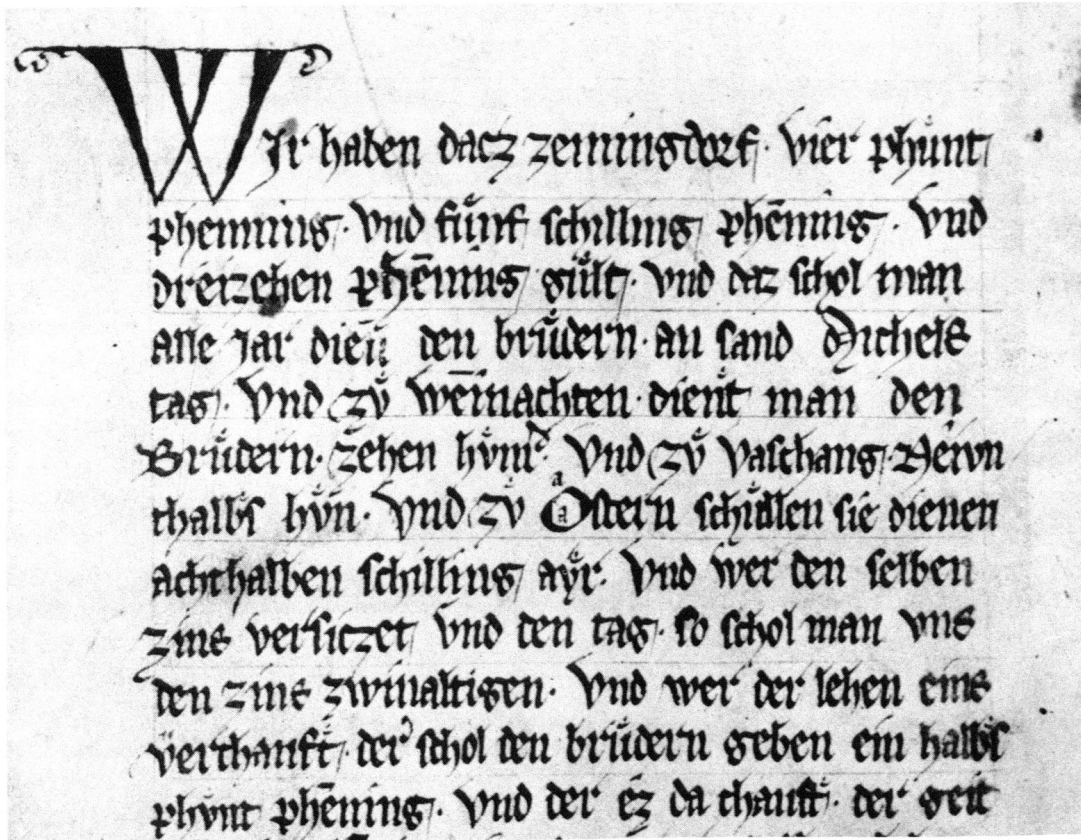 WIr haben dacz zemingdorf · vier phůnt
phenning · vnd fůnf schilling phēning · vnd
dreizehen phēning gůlt · vnd daz schol man
alle Jar dieñ den brůdern · an sand Michels
tag · Vnd zů wēinachten · dient man den
Brůdern · zehen hůnr vnd zů vaschang · Newn
thalbs hůn · vnd zů Ostern schůllen sie dienen
achthalben schilling ayr · vnd wer den selben
zins versiczet vnd den tag · so schol man vns
den zins zwiualtigen · Vnd wer der lehen eins
verchauft · der schol den brůdern geben ein halbs
phůnt phēning · vnd der ez da chauft · der geit